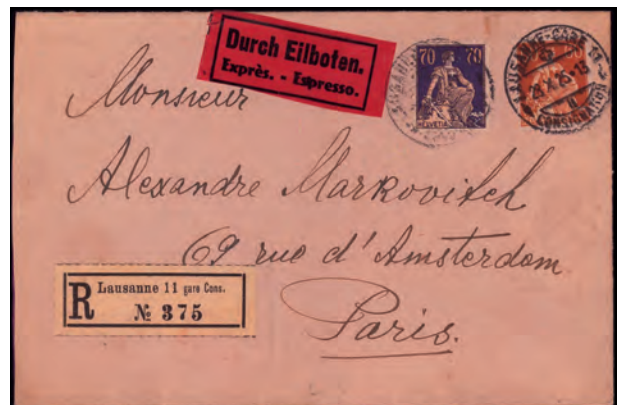 Durch Eilboten.
Exprès. - Espresso.
70 70
HELVETIA
LAUSANNE
LAUSANNE-GARE 11
CONSIGNATION
Monsieur
Alexandre Markovitch
69 rue d'Amsterdam
Paris.
R Lausanne 11 gare Cons.
№ 375